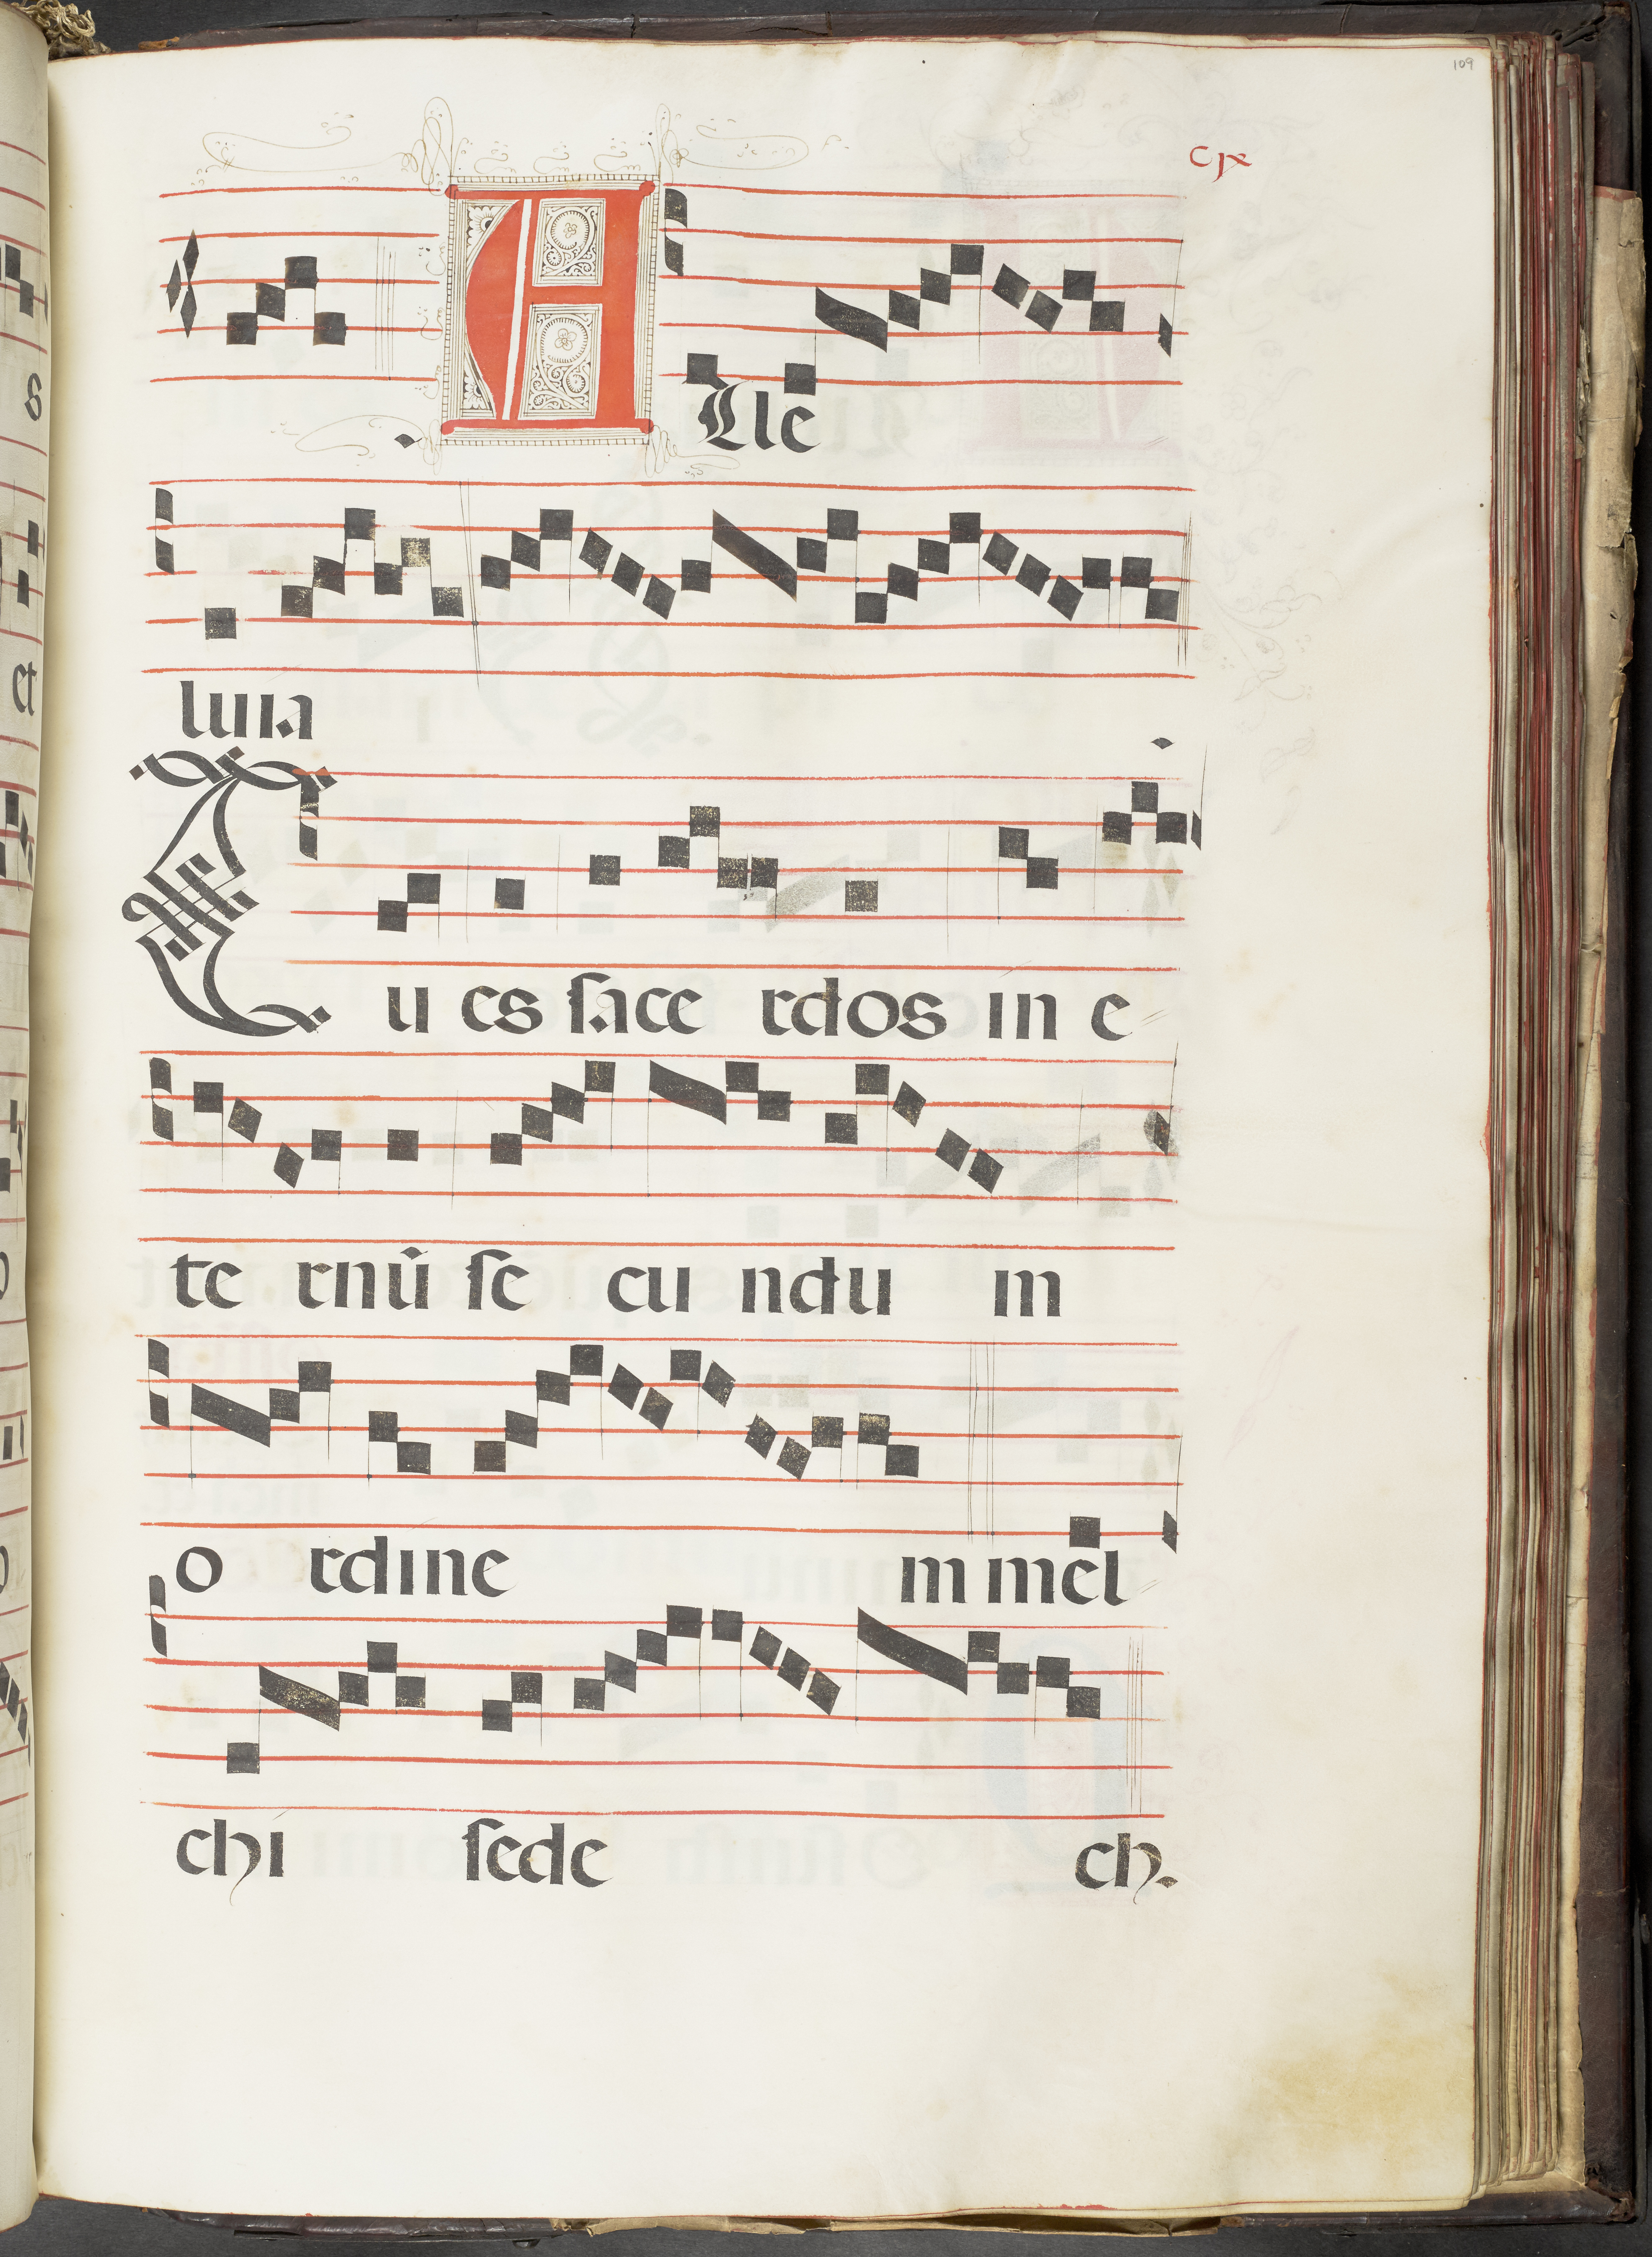 109
cix
. A lle
luia
Tu es sace rdos in e
te rnū se cu ndu m
o rdine m mel
chi sede ch.
s
et